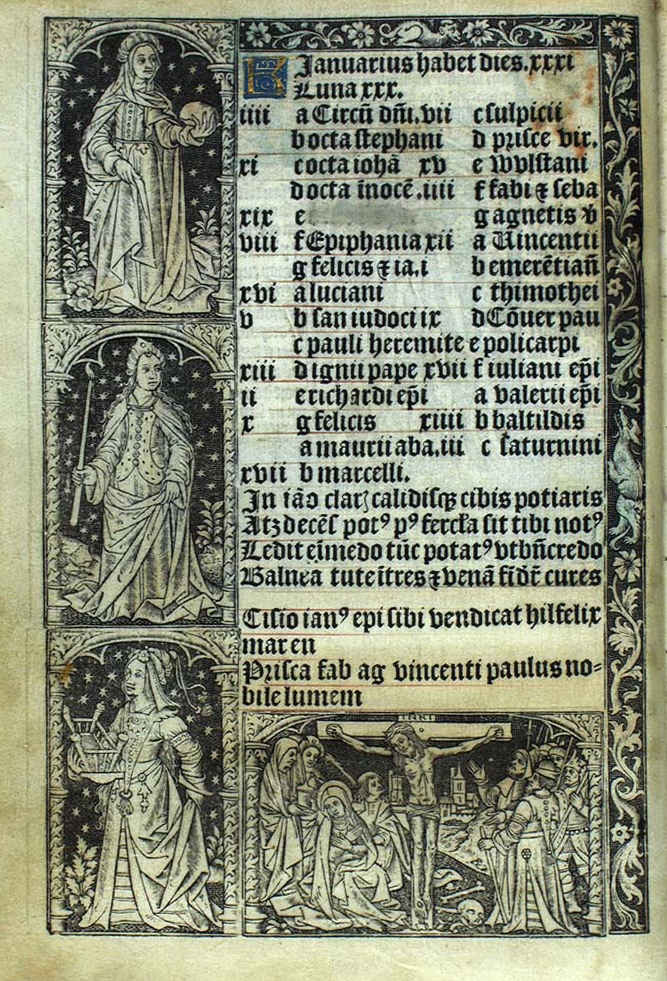 KL Januarius habet dies.xxxi
Luna xxx.
iiii a Circũ dñi.vii c sulpicii
b octa stephani d prisce vir.
xi c octa iohã xv e wulstani
d octa ĩnocẽ.iiii f fabi ⁊ seba
xix e g agnetis v
viii f Epiphania xii a Vincentii
g felicis ⁊ ia.i b emerẽtiañ
xvi a luciani c thimothei
v b san iudoci ix d Cõuer pau
c pauli heremite e policarpi
xiii d iginii pape xvii f iuliani ep̃i
ii e richardi ep̃i a valerii ep̃i
x g felicis xiiii b baltildis
a maurii aba.iii c saturnini
xvii b marcelli.
In iãо clarꝫ calidisqꝫ cibis potiaris
Atꝫ decẽs potꝰ pꝰ fercl'a sit tibi notꝰ
Ledit eĩ medo tũc potatꝰ vt bñ credo
Balnea tute ĩtres ⁊ venã fĩdr̃ cures
Cisio ianꝰ epi sibi vendicat hil felix
mar en
Prisca fab ag vincenti paulus no=
bile lumem
INRI